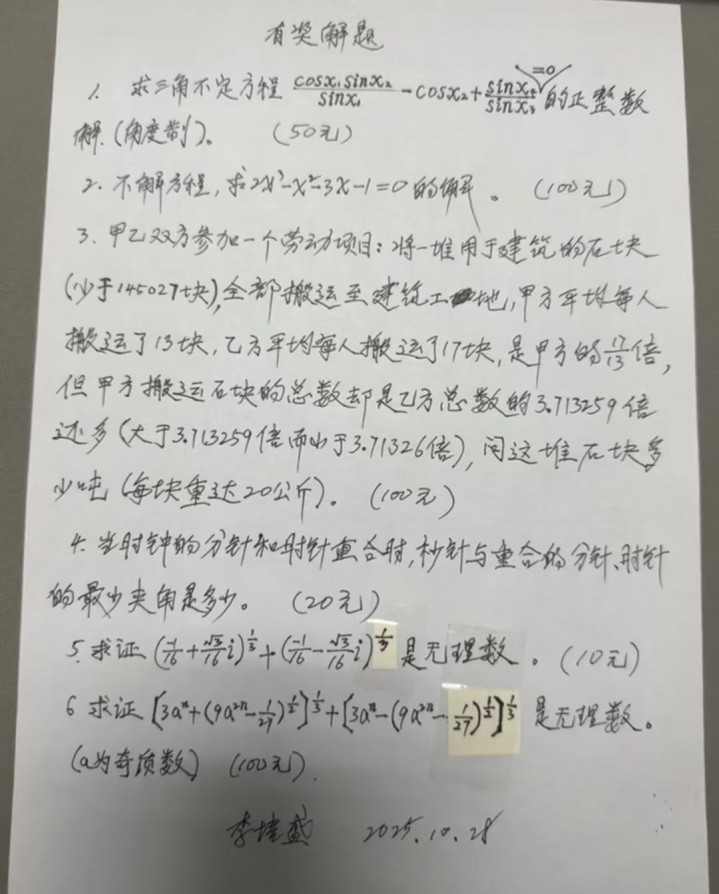 有奖解题
1. 求三角不定方程 (cosx₁sinx₂)/(sinx₁) - cosx₂ + (sinx₄)/(sinx₃) =0 的正整数
解.(角度制)。 (50元)
2. 不解方程, 求2x³-x²-3x-1=0的解。 (100元)
3. 甲乙双方参加一个劳动项目: 将一堆用于建筑的石块
(少于145027块), 全部搬运至建筑工地, 甲方平均每人
搬运了13块, 乙方平均每人搬运了17块, 是甲方的17/13倍,
但甲方搬运石块的总数却是乙方总数的3.713259倍
还多 (大于3.713259倍而小于3.71326倍), 问这堆石块多
少吨 (每块重达20公斤)。 (100元)
4. 当时钟的分针和时针重合时, 秒针与重合的分针、时针
的最少夹角是多少。 (20元)
5. 求证 (-1/16 + √3/16 i)^(1/3) + (-1/16 - √3/16 i)^(1/3) 是无理数。 (10元)
6 求证 [3aⁿ+(9a²ⁿ-1/27)^(1/2)]^(1/3) + [3aⁿ-(9a²ⁿ-1/27)^(1/2)]^(1/3) 是无理数。
(a为奇质数) (100元).
李 2025.10.28